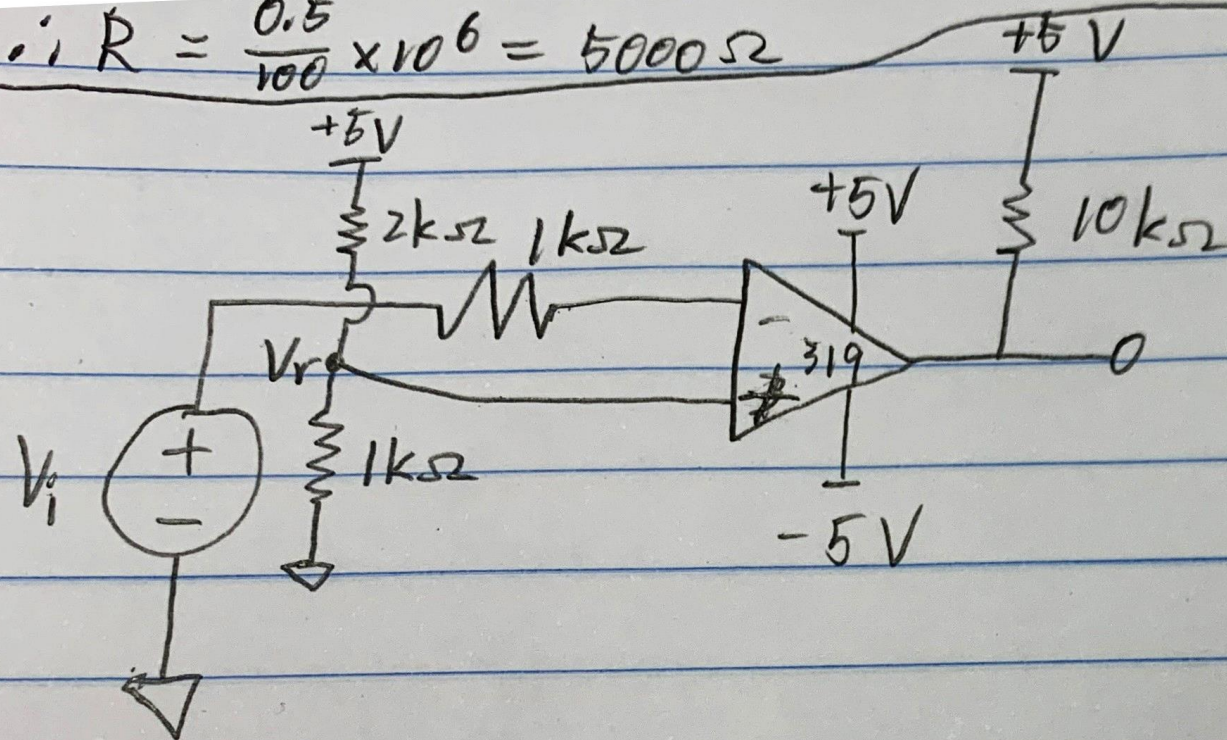 ∴ R = 0.5/100 × 10⁶ = 5000Ω
+5V
+5V
2kΩ
1kΩ
+5V
10kΩ
-
319
+
Vr
O
Vi
+
-
1kΩ
-5V